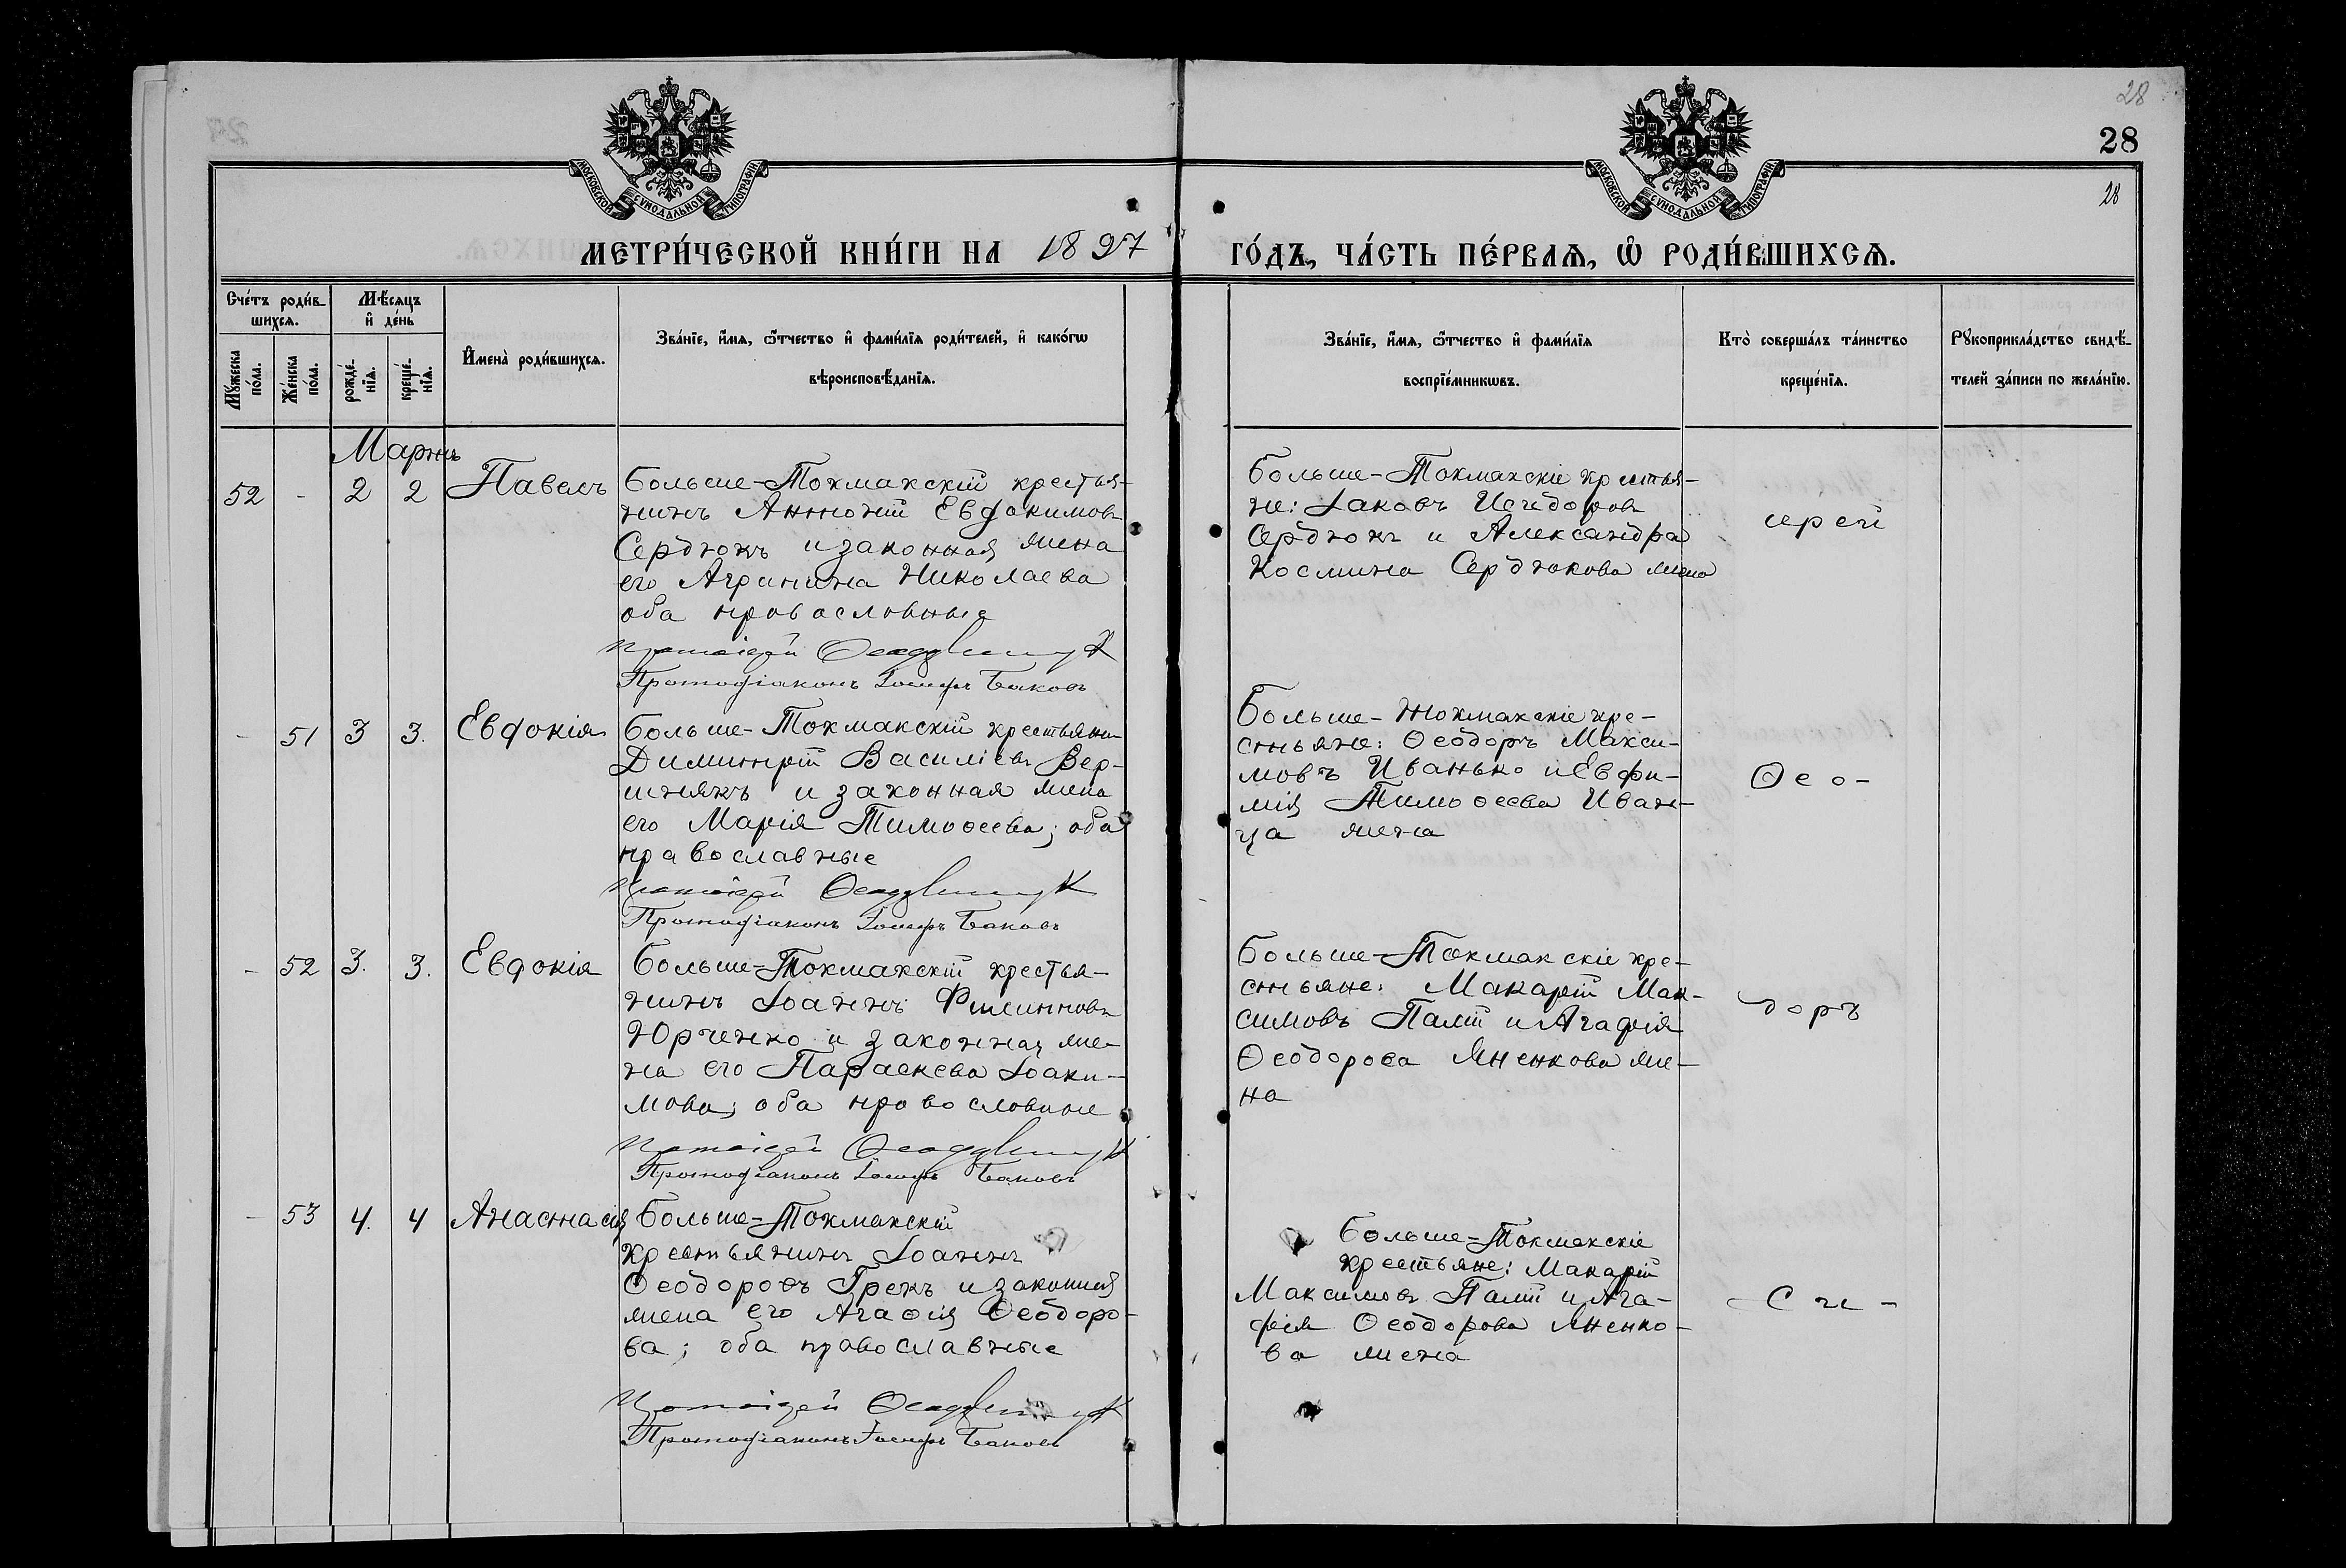 28
28
МОСКОВСКОЙ СѴНОДАЛЬНОЙ ТИПОГРАФІИ
МОСКОВСКОЙ СѴНОДАЛЬНОЙ ТИПОГРАФІИ
28
МЕТРИ́ЧЕСКОЙ КНИ́ГИ НА 1897
ГО́ДЪ, ЧА́СТЬ ПЕ́РВАѦ, Ѡ҆ РОДИ́ВШИХСѦ.
Сче́тъ роди́в-
шихсѧ.
Мѣ́сѧцъ
и҆ де́нь
Мꙋ́жеска
по́ла.
Же́нска
по́ла.
рожде́-
нїѧ.
креще́-
нїѧ.
И҆мена̀ роди́вшихсѧ.
Зва́нїе, и҆́мѧ, ѻ҆́тчество и҆ фами́лїѧ роди́телей, и҆ како́гѡ
вѣроисповѣ́данїѧ.
Зва́нїе, и҆́мѧ, ѻ҆́тчество и҆ фами́лїѧ
воспрїе́мникѡвъ.
Кто̀ соверша́лъ та́инство
креще́нїѧ.
Рꙋкоприкла́дство свидѣ́-
телей за́писи по жела́нїю.
Мартъ
52 - 2 2 Павелъ
Больше-Токмакскій крестья-
нинъ Антоній Евдокимовъ
Сердюкъ и законная жена
его Агрипина Николаева
оба православные
Протоіерей
Протодіаконъ Іосифъ Баковъ
Больше-Токмакскіе крестья-
не: Іаковъ Исидоровъ
Сердюкъ и Александра
Космина Сердюкова жена
іерей
- 51 3 3. Евдокія
Больше-Токмакскій крестьянин
Димитрій Василіевъ Вер-
шнякъ и законная жена
его Марія Тимоѳеева; оба
православные
Протоіерей
Протодіаконъ Іосифъ Баковъ
Больше-Токмакскіе кре-
стьяне: Ѳеодоръ Макси-
мовъ Иванько и Евфи-
мія Тимоѳеева Иван-
ца жена
Ѳео-
- 52 3. 3. Евдокія
Больше-Токмакскій крестья-
нинъ Іоаннъ Филипповъ
Юрченко и законная же-
на его Параскева Іоаки-
мова; оба православные
Протоіерей
Протодіаконъ Іосифъ Баковъ
Больше-Токмакскіе кре-
стьяне: Макарій Мак-
симовъ Палій и Агафія
Ѳеодорова Яненкова же-
на
доръ
- 53 4. 4 Анастасія
Больше-Токмакскій
крестьянинъ Іоаннъ
Ѳеодоровъ Грекъ и законная
жена его Агаѳія Ѳеодоро-
ва; оба православные
Протоіерей
Протодіаконъ Іосифъ Баковъ
Больше-Токмакскіе
крестьяне: Макарій
Максимовъ Палій и Ага-
фія Ѳеодорова Яненко-
ва жена